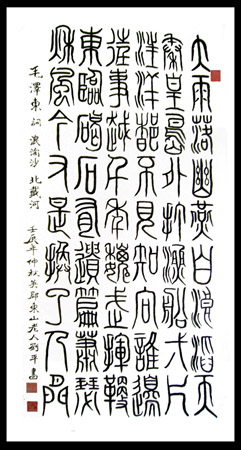 大雨落幽燕白浪滔天
秦皇島外打漁船一片
汪洋都不見知向誰邊
往事越千年魏武揮鞭
東臨碣石有遺篇蕭瑟
秋風今又是換了人間
毛澤東詞 浪淘沙 北戴河 壬辰年仲秋 東山老人劉平書